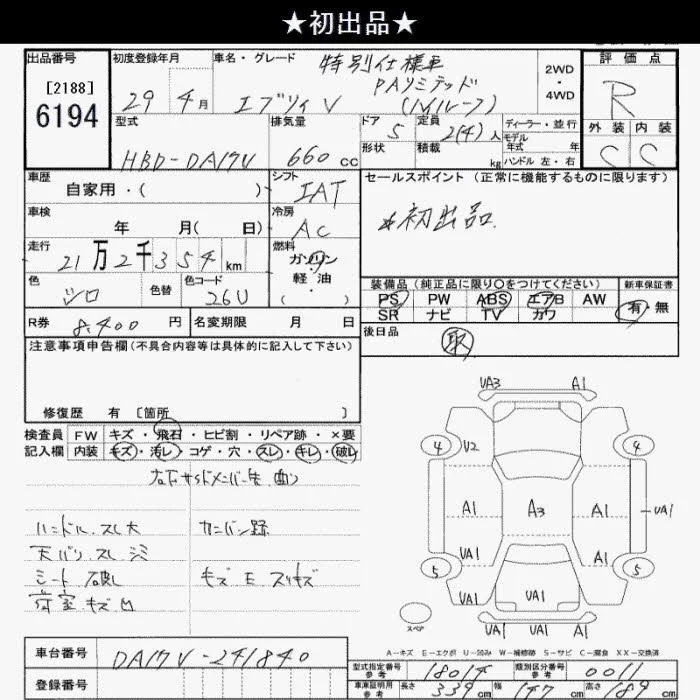 ★初出品★
出品番号
初度登録年月
車名・グレード
特別仕様車
評価点
[2188]
6194
29年4月
エブリィ V
PAリミテッド
(ハイルーフ)
2WD
・
4WD
R
型式
排気量
ドア 5
定員 2(4)人
ディーラー・並行
外装
内装
HBD-DA17V
660cc
形状
積載 kg
モデル年式 年
ハンドル 左・右
C
C
車歴
自家用・( )
シフト
IAT
セールスポイント(正常に機能するものに限ります)
*初出品
車検
年 月( 日)
冷房
AC
走行
21万2千354km
燃料
ガソリン
軽油
色
シロ
色替
色コード
26U
装備品(純正品に限り○をつけてください)
新車保証書
PS PW ABS エアB AW
SR ナビ TV カワ
有・無
R券 8,400円
名変期限 月 日
後日品
取
注意事項申告欄(不具合内容等は具体的に記入して下さい)
修復歴 有 [箇所 ]
検査員
記入欄
FW キズ・飛石・ヒビ割・リペア跡・×要
内装 キズ・汚レ・コゲ・穴・スレ・キレ・破レ
ハンドル.スレ大
天バリ.スレ シミ
シート 破れ
荷室.キズ 凹
カンバン跡
キズ E スリキズ
UA3
A1
4
U2
4
A1
A3
A1
UA1
UA1
A1
5
5
UA1
UA1
UA1
スペア
A-キズ E-エクボ U-凹み W-補修跡 S-サビ C-腐食 XX-交換済
車台番号
DA17V-241840
型式指定番号
参考
18014
類別区分番号
参考
0011
登録番号
車庫証明用
参考
長さ 339cm
幅 147cm
高さ 189cm